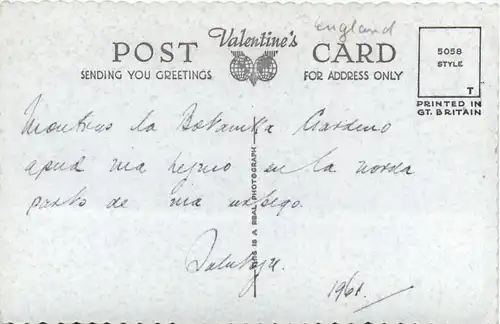 England
Valentine's
POST CARD
SENDING YOU GREETINGS
FOR ADDRESS ONLY
5058
STYLE
T
PRINTED IN
GT. BRITAIN
THIS IS A REAL PHOTOGRAPH
Montras la Botanika Ĝardeno
apud mia hejmo en la norda
parto de mia urbego.
Salutojn.
1961.